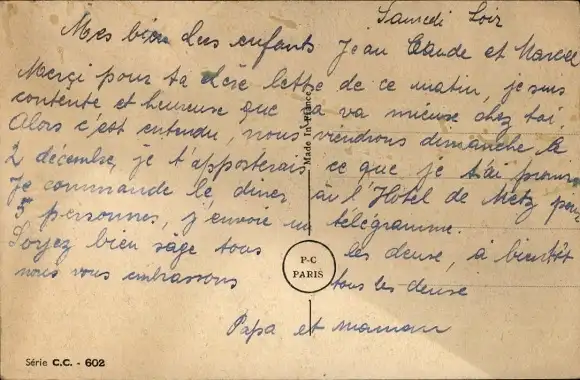 Samedi Soir
Mes bien chers enfants Jean Claude et Marcel
Merçi pour ta chère lettre de ce matin, je suis
contente et heureuse que ça va mieuse chez toi,
Alors c'est entendu, nous viendrons dimanche le
2 décembre, je t'apposterais ce que je t'ai promis
Je commande le diner, à l'Hôtel de Metz pour
5 personnes, j'envoie un télégramme.
Soyez bien sage tous les deuse, à bientôt
nous vous embrassons tous les deuse
Papa et maman
Made In France
P-C
PARIS
Série C.C. - 602